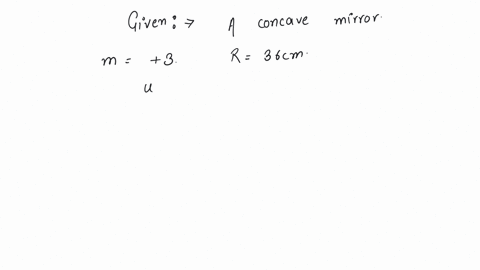 Given: → A concave mirror.
m = +3. R = 36cm.
u